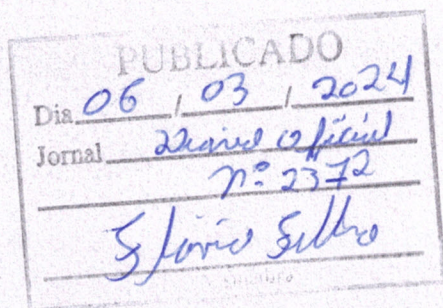 PUBLICADO
Dia 06 / 03 / 2024
Jornal Diário Oficial
nº 2372